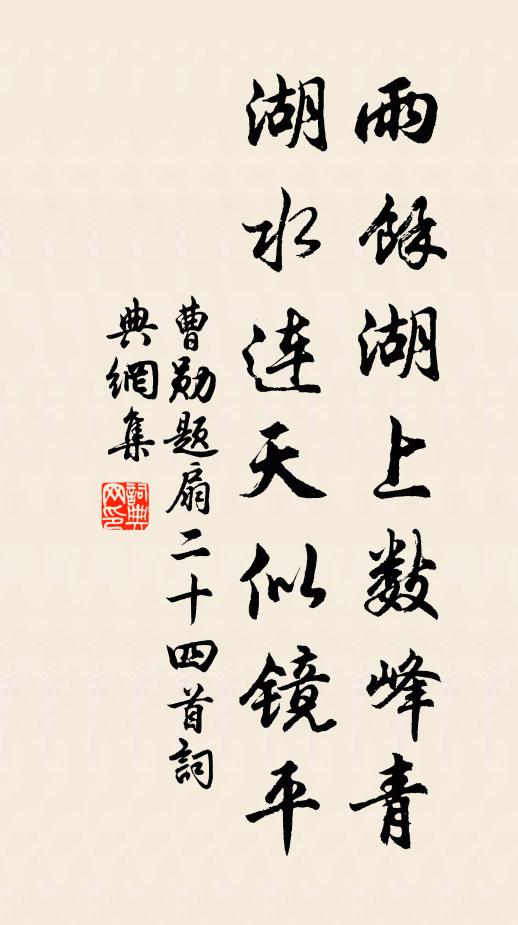 雨餘湖上數峰青
湖水連天似鏡平
曹勛題扇二十四首詞
典網集
詞典
网印